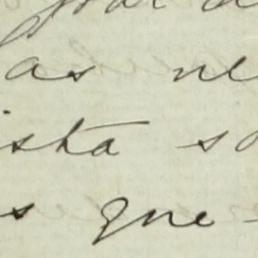 as ne
ista so
s que